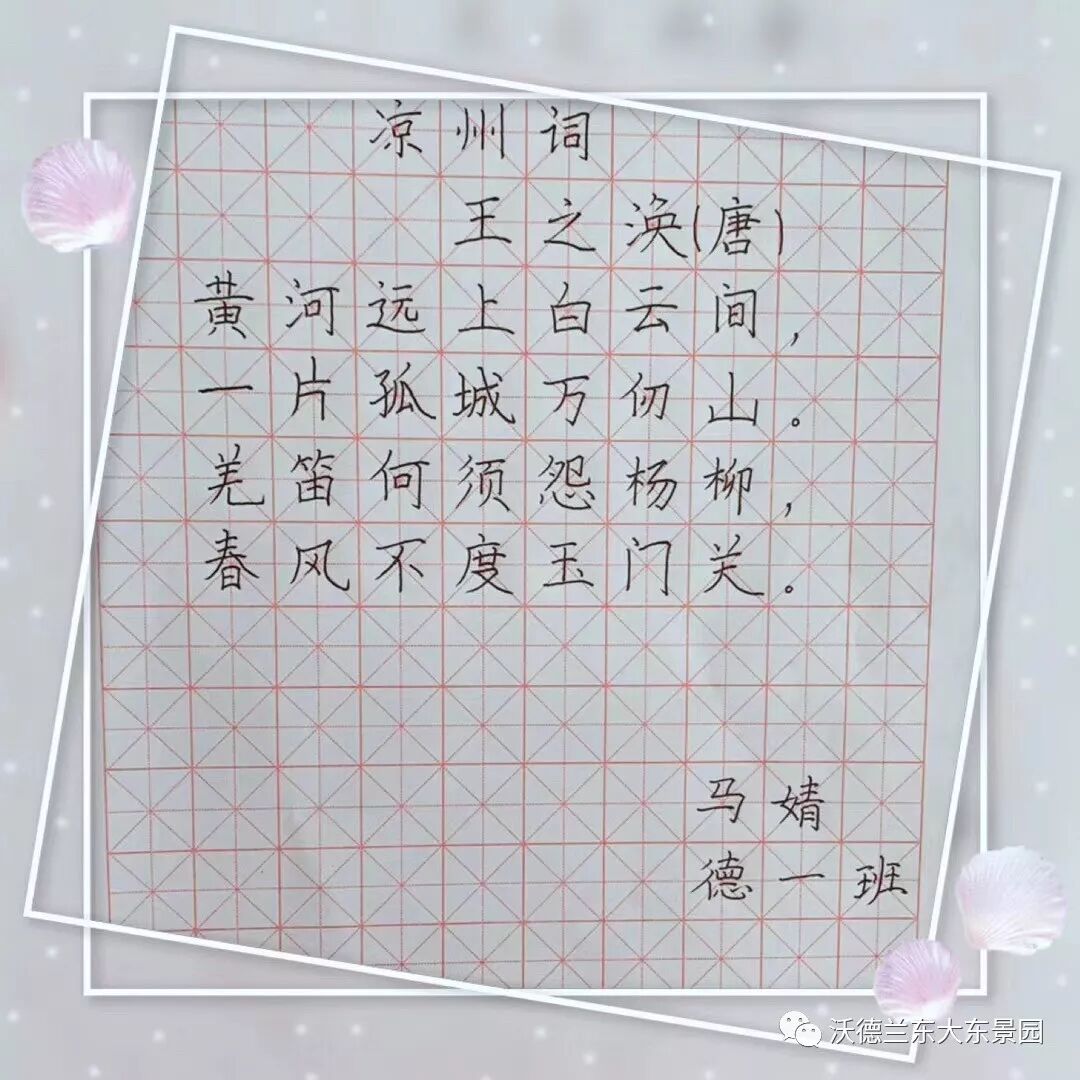 凉州词
王之涣(唐)
黄河远上白云间,
一片孤城万仞山。
羌笛何须怨杨柳,
春风不度玉门关。
马婧
德一班
沃德兰东大东景园